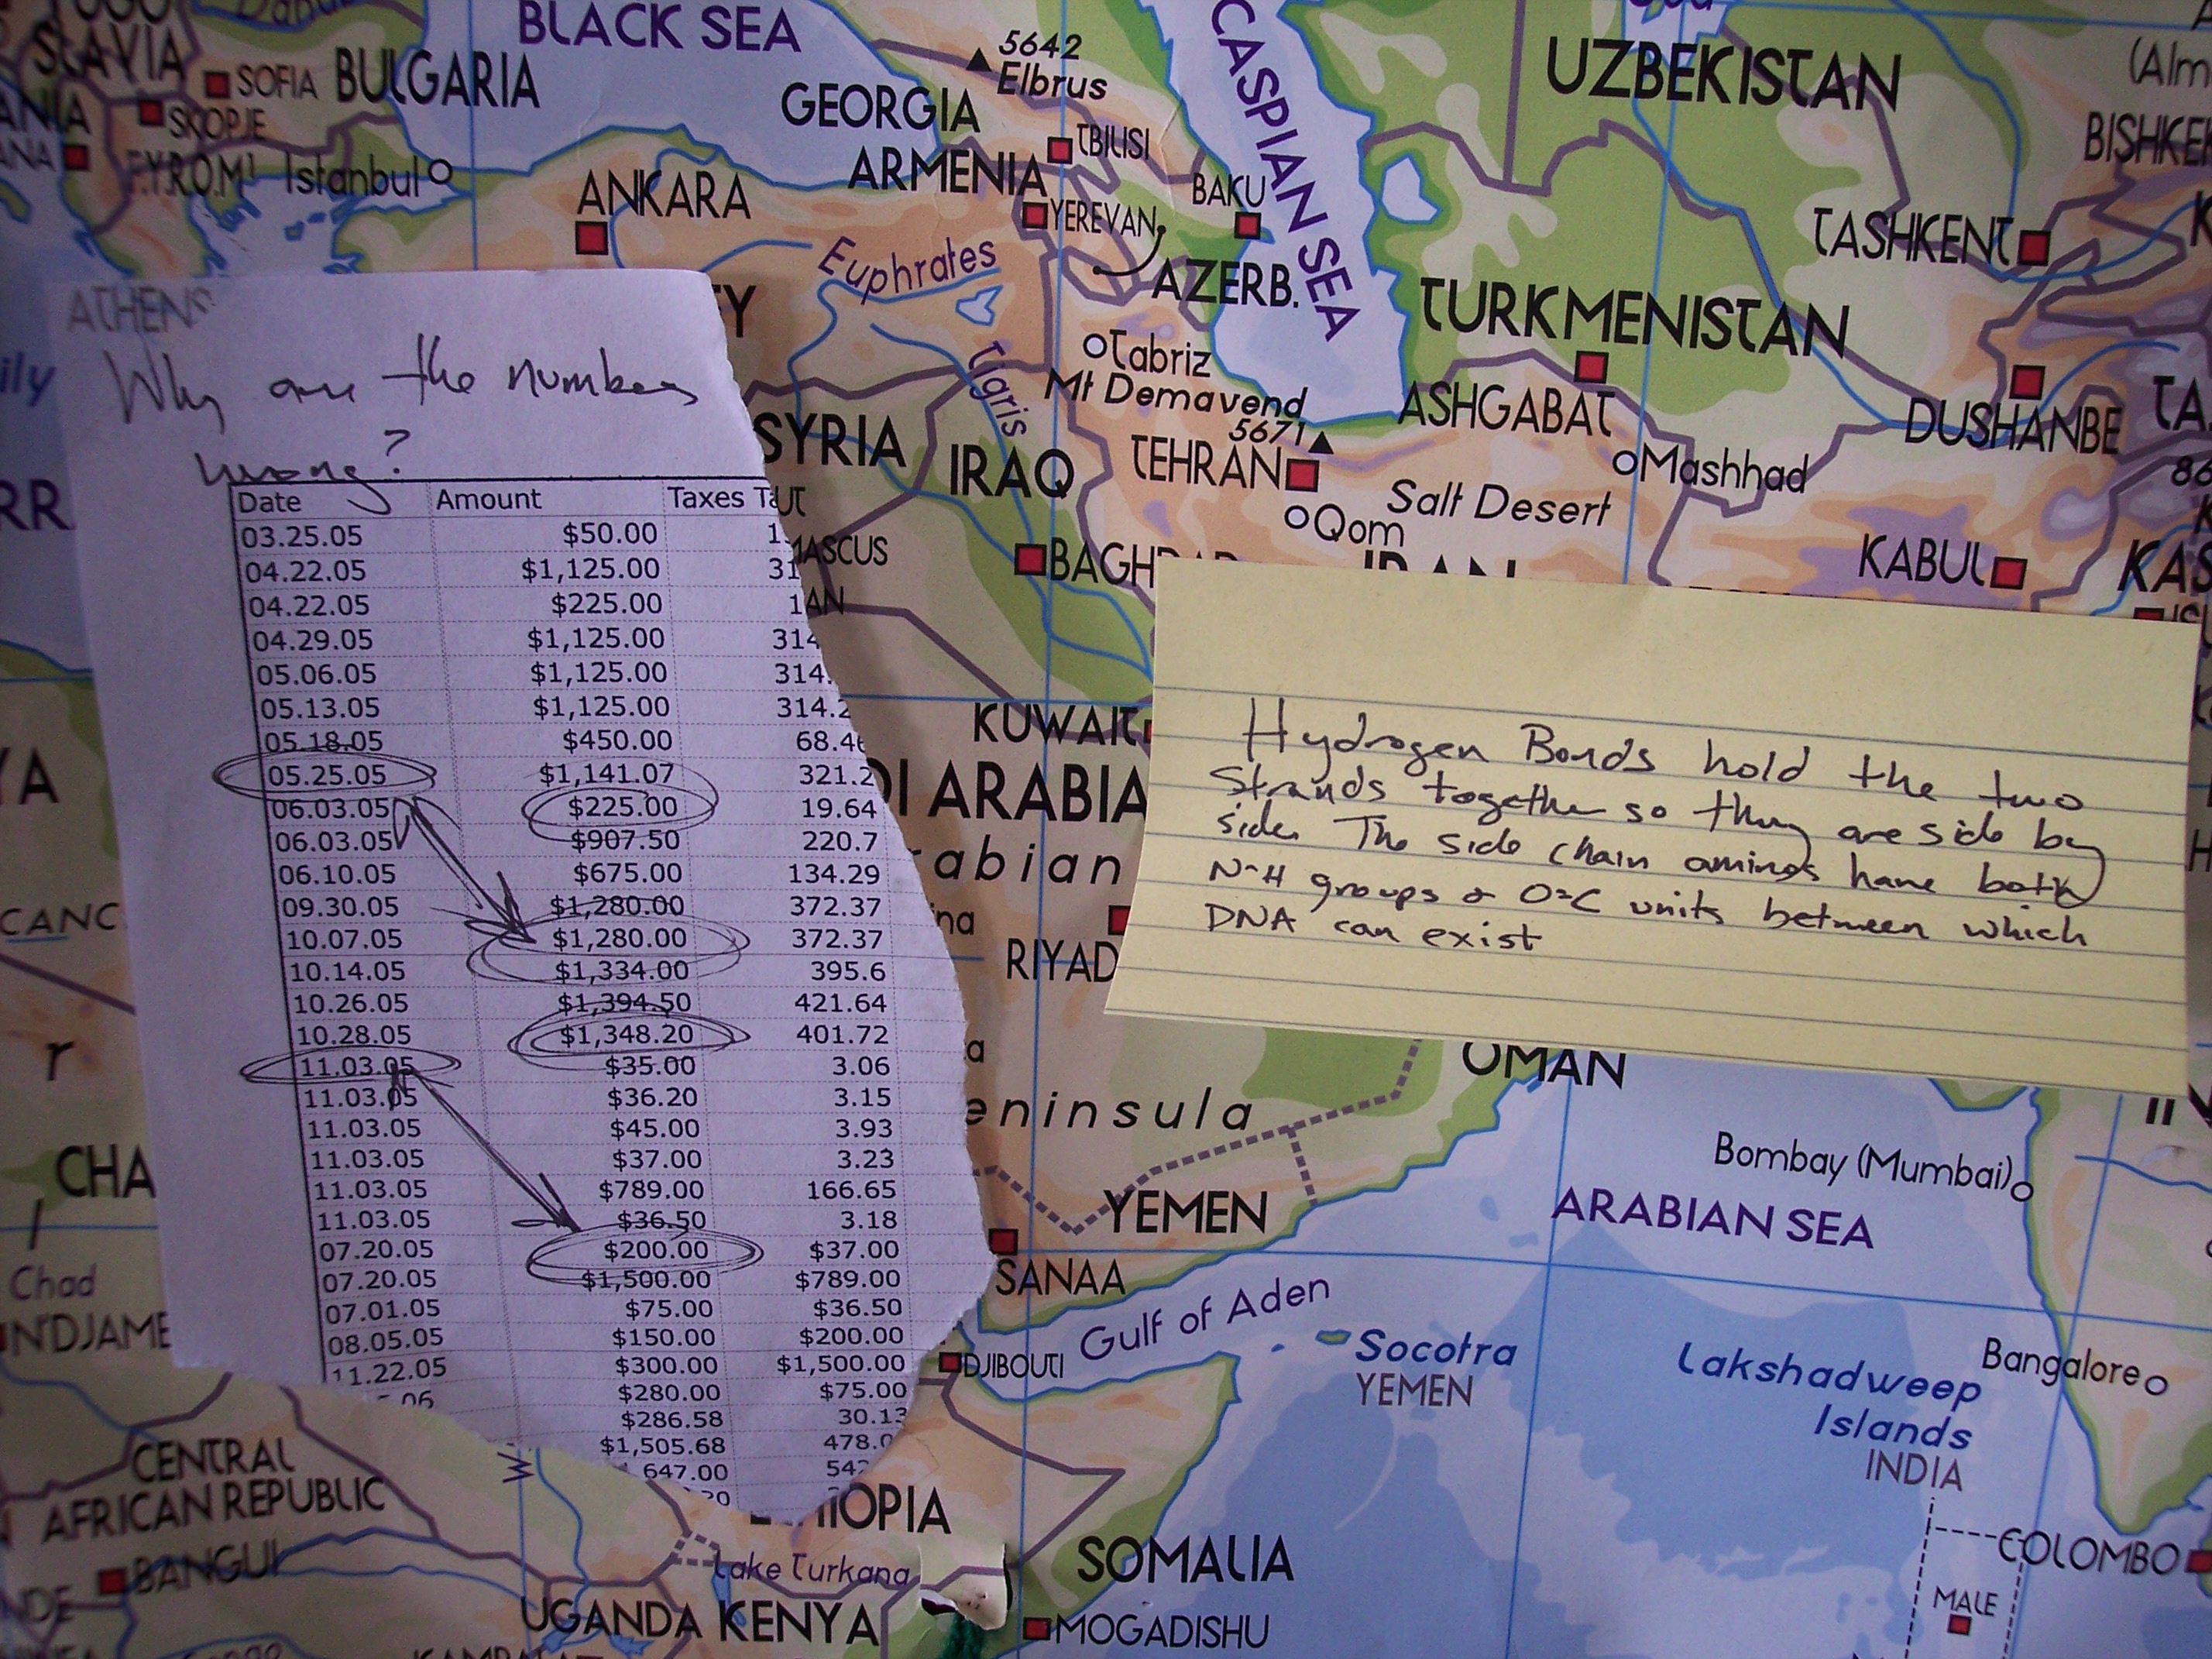 BLACK SEA
5642
Elbrus
SOFIA BULGARIA
SKOPJE
F.Y.R.O.M. Istanbul
GEORGIA
TBILISI
ARMENIA
YEREVAN
BAKU
AZERB.
CASPIAN SEA
UZBEKISTAN
(Alm
BISHKEK
TASHKENT
ANKARA
Euphrates
Tigris
TURKMENISTAN
ASHGABAT
DUSHANBE
Tabriz
Mt Demavend
5671
TEHRAN
Qom
Salt Desert
Mashhad
KABUL
SYRIA
IRAQ
ATHENS
Why are the numbers
wrong?
Date Amount Taxes
03.25.05 $50.00
04.22.05 $1,125.00
04.22.05 $225.00
04.29.05 $1,125.00 314
05.06.05 $1,125.00 314.
05.13.05 $1,125.00 314.2
05.18.05 $450.00 68.46
05.25.05 $1,141.07 321.2
06.03.05 $225.00 19.64
06.03.05 $907.50 220.7
06.10.05 $675.00 134.29
09.30.05 $1,280.00 372.37
10.07.05 $1,280.00 372.37
10.14.05 $1,334.00 395.6
10.26.05 $1,394.50 421.64
10.28.05 $1,348.20 401.72
11.03.05 $35.00 3.06
11.03.05 $36.20 3.15
11.03.05 $45.00 3.93
11.03.05 $37.00 3.23
11.03.05 $789.00 166.65
11.03.05 $36.50 3.18
07.20.05 $200.00 $37.00
07.20.05 $1,500.00 $789.00
07.01.05 $75.00 $36.50
08.05.05 $150.00 $200.00
11.22.05 $300.00 $1,500.00
06 $280.00 $75.00
$286.58 30.13
$1,505.68 478.0
647.00 542
MASCUS
BAGH
KUWAIT
DI ARABIA
rabian
RIYAD
eninsula
Hydrogen Bonds hold the two
Strands together so they are side by
side. The side chain aminos have both
N-H groups & O=C units between which
DNA can exist
OMAN
YEMEN
SANAA
Bombay (Mumbai)
ARABIAN SEA
Gulf of Aden
DJIBOUTI
Socotra
YEMEN
Lakshadweep
Islands
INDIA
Bangalore
CHA
Chad
N'DJAME
CENTRAL
AFRICAN REPUBLIC
BANGUI
HIOPIA
Lake Turkana
SOMALIA
COLOMBO
MALE
UGANDA KENYA
MOGADISHU